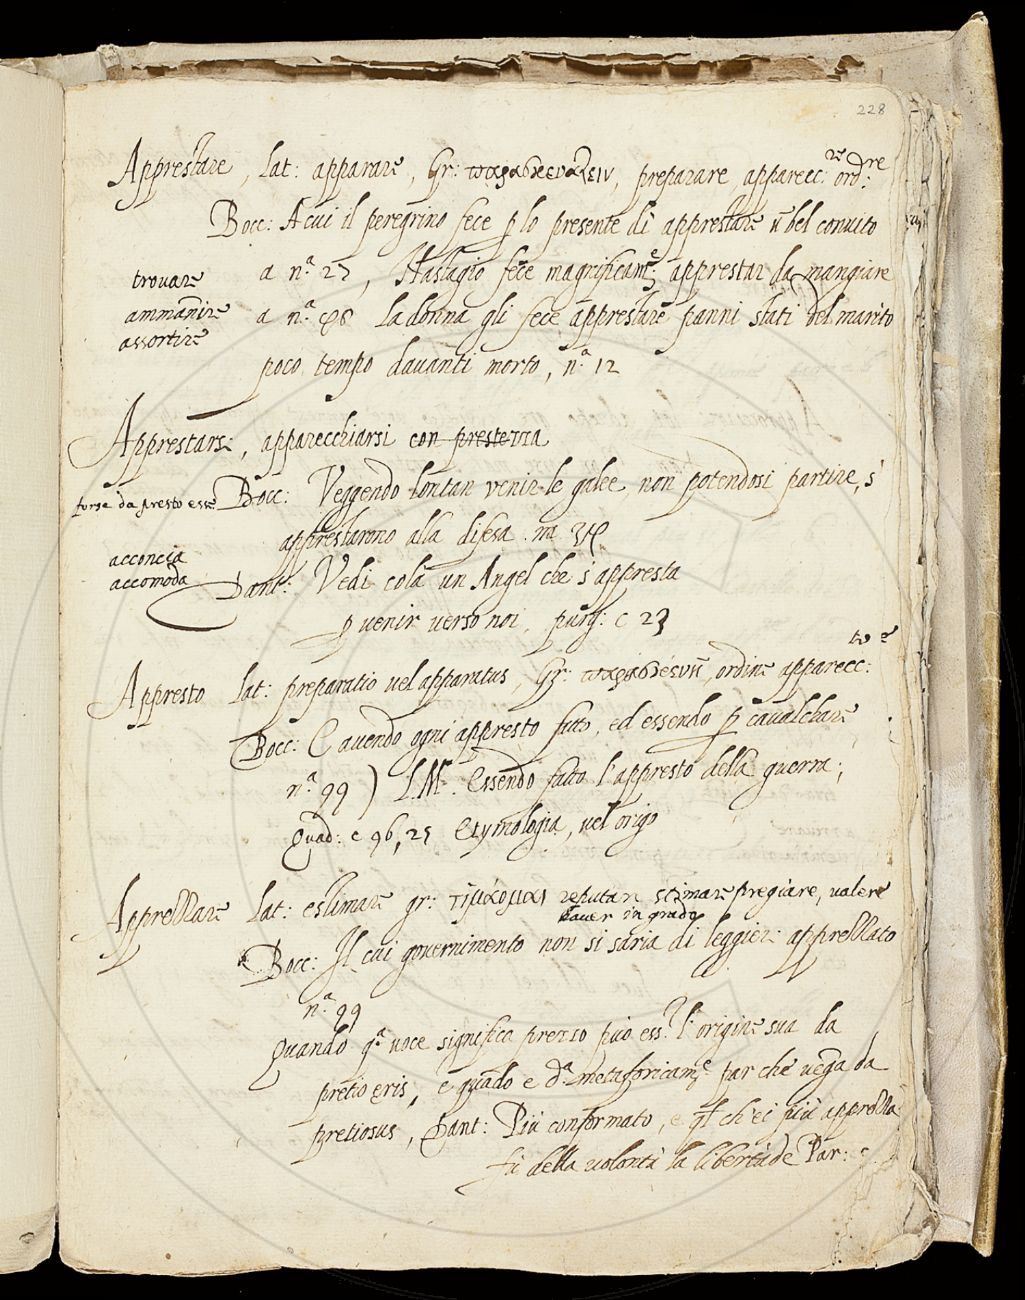 228
Apprestare, lat: apparare, Gr: παρασκευάζειν, preparare, apparec:re ord:re
Bocc: A cui il peregrino fece p lo presente dì apprestare ũ bel convito
a n.a 27, Nastagio fece magnificam.e apprestar da mangiare
trovare
ammanire
assortire
a n.a 48 La donna gli fece apprestare panni stati del marito
poco tempo davanti morto, n.a 12
Apprestarsi, apparecchiarsi con prestezza
forse da presto esse
Bocc: Veggendo lontan venir le galee non potendosi partire, s'
apprestarono alla difesa. n.a 34
acconcia
accomoda
Dant: Vedi colà un Angel che s'appresta
p venir verso noi, purg: c 23
Appresto lat: preparatio vel apparatus, Gr: παρασκευὴ, ordine apparecc:to
Bocc: E avendo ogni appresto fatto, ed essendo p cavalchare
n.a 99) L.M. Essendo fatto l'appresto della guerra;
Quad: c 96, 25 Etymologia, vel origo
Apprezzare lat: estimare gr: τιμάομαι reputare stimare pregiare, valere
haver in grado
Bocc: Il cui governimento non si saria di leggier: apprezzato
n.a 99
Quando q.a voce significa prezzo può ess.e l'origine sua da
pretio eris, e quãdo e d.a metaforicam.e par che vẽga da
pretiosus, Dant: Più conformato, e q.l ch'ei più apprezza
fù della volontà la libertade Par: c